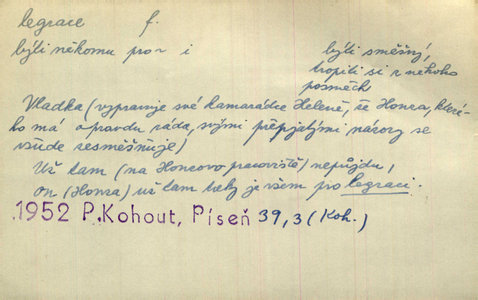 legrace f.
býti někomu pro r i býti směšný,
tropiti si z někoho
posměch
Vladka (vypravuje své kamarádce Heleně, že Honza, které-
ho má opravdu ráda, svými přepjatými názory se
všude zesměšňuje)
Už tam (na Honzovo pracoviště) nepůjdu,
on (Honza) už tam tady je všem pro legraci.
1952 P. Kohout, Píseň 39,3 (Koh.)